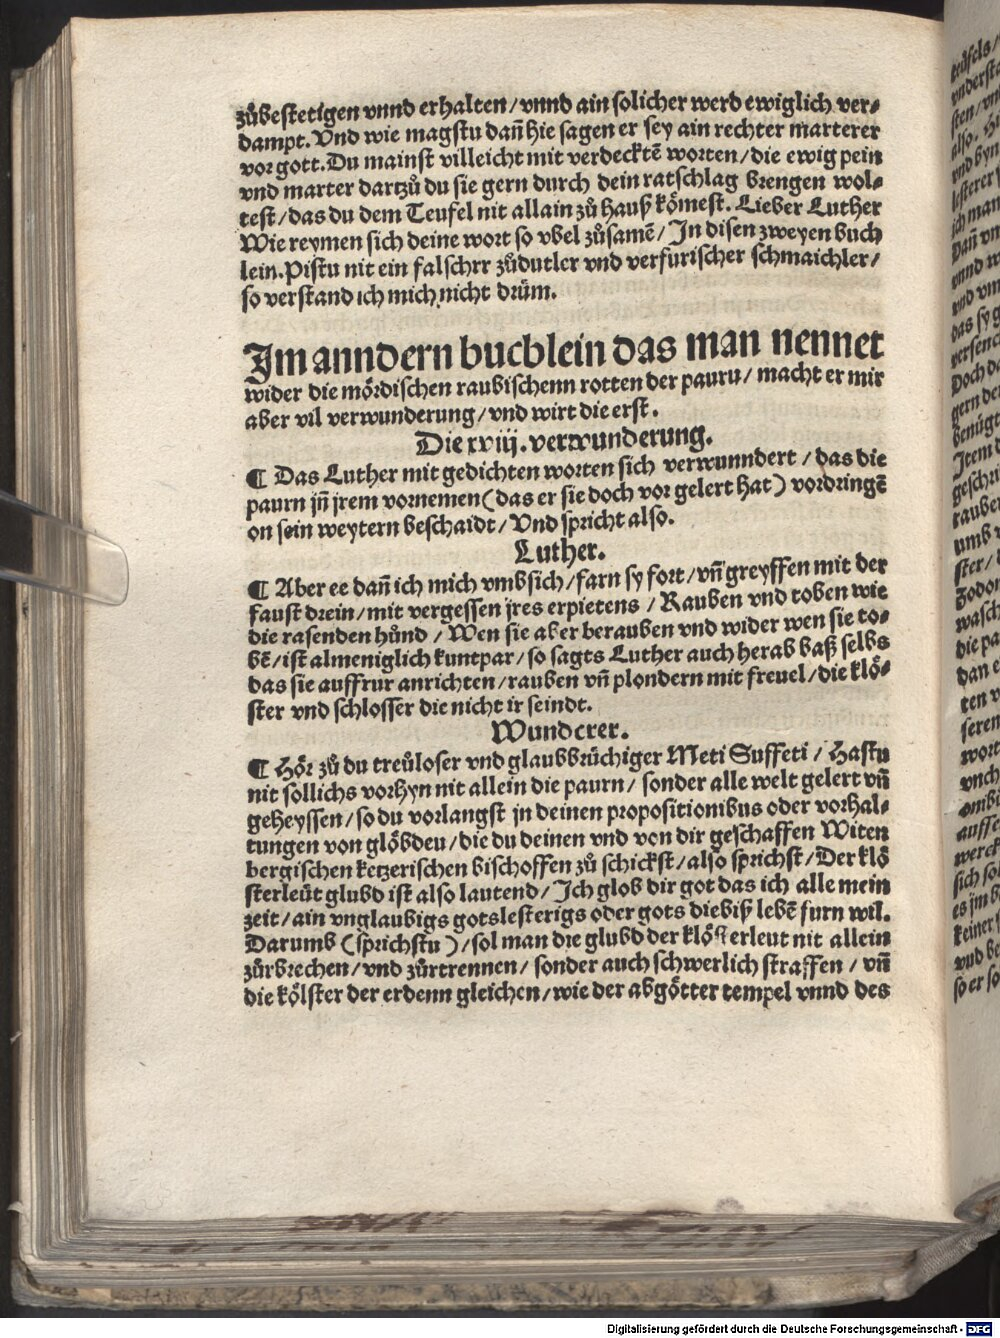 zůbestetigen vnnd erhalten/vnnd ain solicher werd ewiglich ver⸗
dampt. Vnd wie magstu dañ hie sagen er sey ain rechter marterer
vor gott. Du mainst villeicht mit verdecktē worten/die ewig pein
vnd marter dartzů du sie gern durch dein ratschlag brengen wol⸗
test/das du dem Teufel nit allain zů hauß kömest. Lieber Luther
Wie reymen sich deine wort so vbel zůsamē/In disen zweyen buch
lein. Pistu nit ein falschrr zůdutler vnd verfurischer schmaichler/
so verstand ich mich nicht drüm.
Im anndern bucblein das man nennet
wider die mördischen raubischenn rotten der pauru/macht er mir
aber vil verwunderung/vnd wirt die erst.
Die xviij. verwunderung.
¶ Das Luther mit gedichten worten sich verwunndert/das die
paurn jñ jrem vornemen (das er sie doch vor gelert hat) vordringē
on sein weytern beschaidt/Vnd spricht also.
Luther.
¶ Aber ee dañ ich mich vmbsich/farn sy fort/vñ greyffen mit der
faust drein/mit vergessen jres erpietens/Rauben vnd toben wie
die rasenden hůnd/Wen sie aber berauben vnd wider wen sie to⸗
bē/ist almeniglich kuntpar/so sagts Luther auch herab baß selbs
das sie auffrur anrichten/rauben vñ plondern mit freuel/die klö⸗
ster vnd schlosser die nicht ir seindt.
Wunderer.
¶ Hör zů du treůloser vnd glaubbrüchiger Meti Suffeti/Hastu
nit sollichs vorhyn nit allein die paurn/sonder alle welt gelert vñ
geheyssen/so du vorlangst jn deinen propositionibus oder vorhal⸗
tungen von glöbdeu/die du deinen vnd von dir geschaffen Witen
bergischen ketzerischen bischoffen zů schickst/also sprichst/Der klö
sterleůt glubd ist also lautend/Ich glob dir got das ich alle mein
zeit/ain vnglaubigs gotslesterigs oder gots diebiß lebē furn wil.
Darumb (sprichstu) sol man die glubd der klösterleut nit allein
zůrbrechen/vnd zůrtrennen/sonder auch schwerlich straffen/vñ
die kölster der erdenn gleichen/wie der abgötter tempel vnnd des
Digitalisierung gefördert durch die Deutsche Forschungsgemeinschaft - DFG